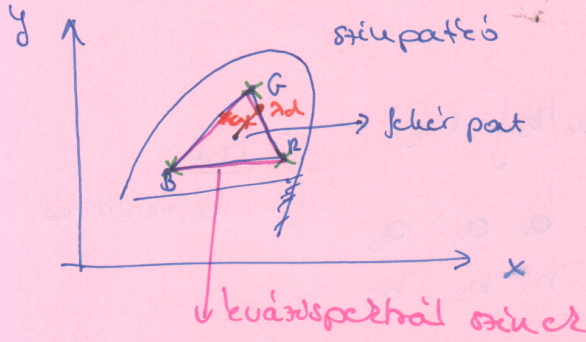 y
színpatkó
G
λd
fehér pont
R
B
x
kvázispektrál színek